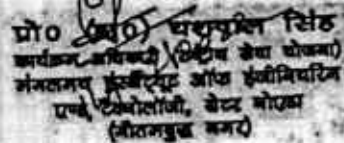 प्रो० (डॉ०) यशपाल सिंह
कार्यक्रम अधिकारी (राष्ट्रीय सेवा योजना)
मंगलमय इंस्टीट्यूट ऑफ इंजीनियरिंग
एण्ड टैक्नोलॉजी, ग्रेटर नोएडा
(गौतमबुद्ध नगर)